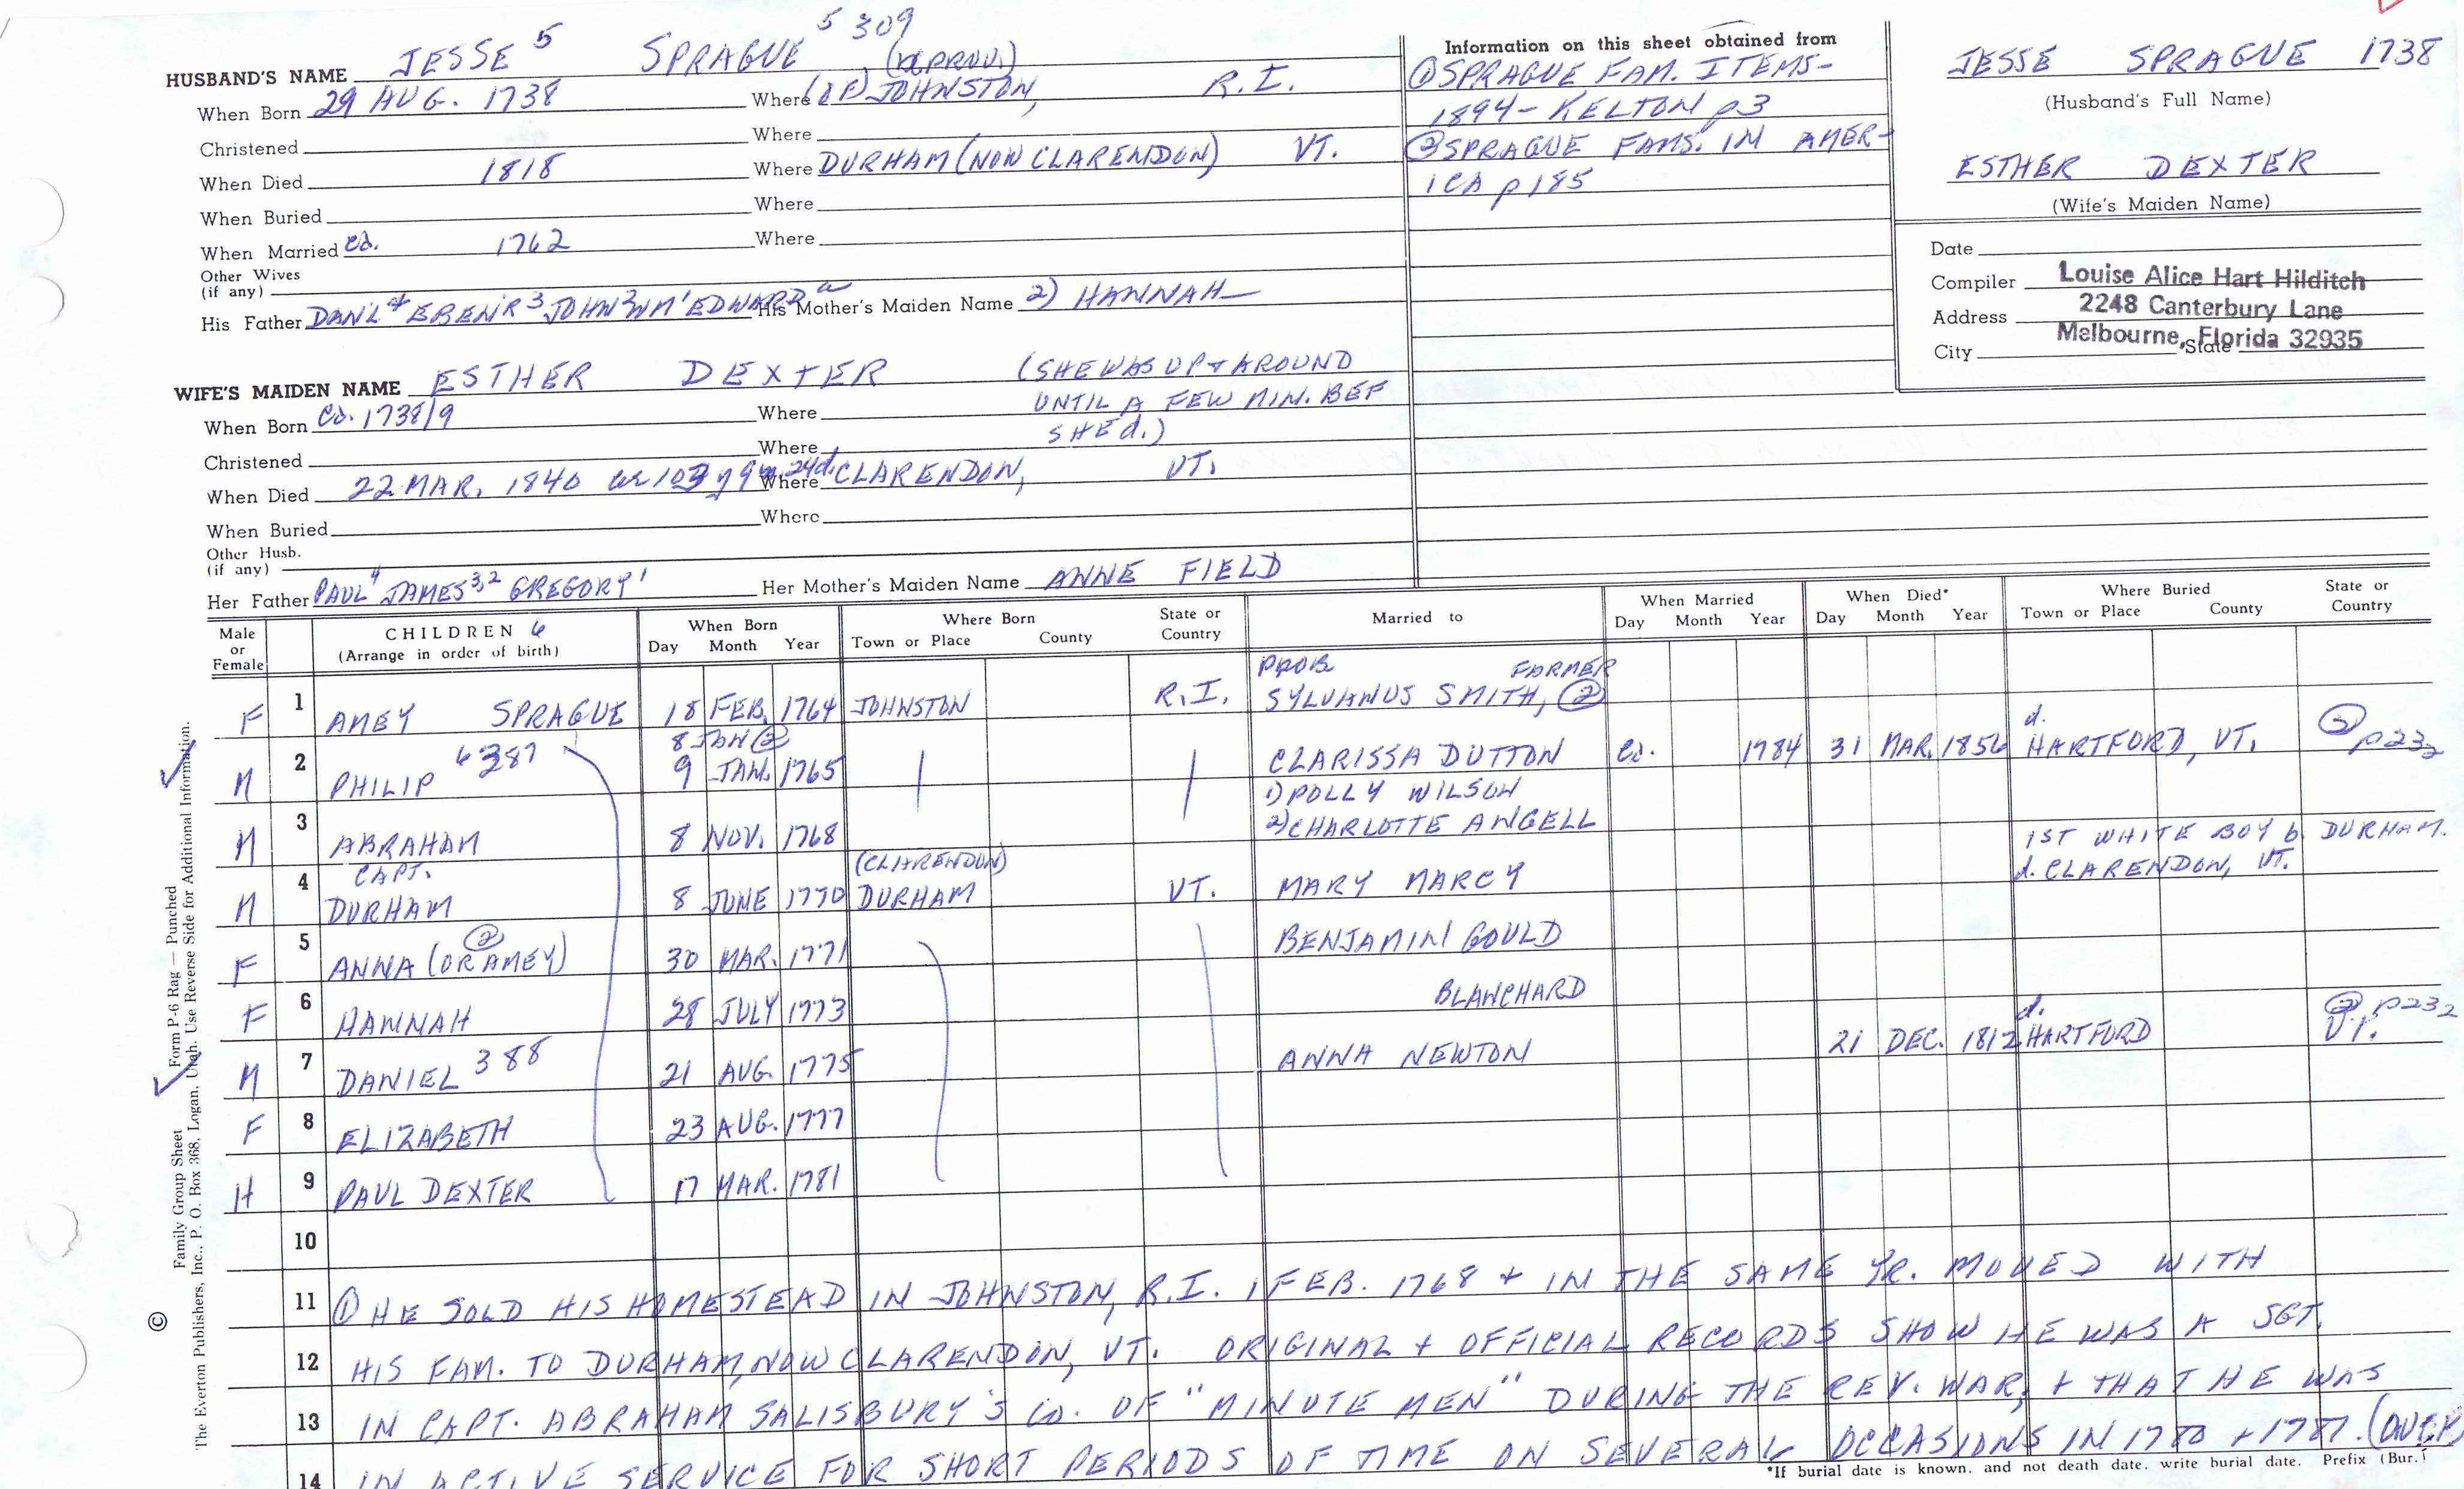 5 309
HUSBAND'S NAME JESSE 5 SPRAGUE
When Born 29 AUG. 1738 Where (OF) JOHNSTON, R.I.
Christened Where
When Died 1818 Where DURHAM (NOW CLARENDON) VT.
When Buried Where
When Married Ca. 1762 Where
Other Wives
(if any)
His Father DAN'L 4 EBEN'R 3 JOHN 2 WM 1 EDWARD a His Mother's Maiden Name 2) HANNAH —
Information on this sheet obtained from
① SPRAGUE FAM. ITEMS-
1894 - KELTON p3
② SPRAGUE FAMS. IN AMER-
ICA p185
JESSE SPRAGUE 1738
(Husband's Full Name)
ESTHER DEXTER
(Wife's Maiden Name)
Date
Compiler Louise Alice Hart Hilditch
Address 2248 Canterbury Lane
City Melbourne, Florida 32935 State
WIFE'S MAIDEN NAME ESTHER DEXTER (SHE WAS UP + AROUND
UNTIL A FEW MIN. BEF
SHE d.)
When Born Ca. 1738/9 Where
Christened Where
When Died 22 MAR. 1840 ae 103 y 9 m 24d. Where CLARENDON, VT.
When Buried Where
Other Husb.
(if any)
Her Father PAUL 4 JAMES 3,2 GREGORY 1 Her Mother's Maiden Name ANNE FIELD
Male or Female CHILDREN 6 (Arrange in order of birth) When Born Day Month Year Where Born Town or Place County State or Country Married to When Married Day Month Year When Died* Day Month Year Where Buried Town or Place County State or Country
PROB FARMER
F 1 AMEY SPRAGUE 18 FEB. 1764 JOHNSTON R.I. SYLVANUS SMITH, ②
8 JAN ② d.
M 2 PHILIP 6 387 9 JAN. 1765 CLARISSA DUTTON Ca. 1784 31 MAR. 1856 HARTFORD, VT. ② p232
1) POLLY WILSON
M 3 ABRAHAM 8 NOV. 1768 2) CHARLOTTE ANGELL
CAPT. (CLARENDON) 1ST WHITE BOY b DURHAM.
M 4 DURHAM 8 JUNE 1770 DURHAM VT. MARY MARCY d. CLARENDON, VT.
M 5
F 5 ANNA (OR AMEY) ② 30 MAR. 1771 BENJAMIN GOULD
F 6 HANNAH 28 JULY 1773 BLANCHARD
d. ② p232
M 7 DANIEL 388 21 AUG. 1775 ANNA NEWTON 21 DEC. 1812 HARTFORD VT.
F 8 ELIZABETH 23 AUG. 1777
M 9 PAUL DEXTER 17 MAR. 1781
10
11 ① HE SOLD HIS HOMESTEAD IN JOHNSTON, R.I. 1 FEB. 1768 + IN THE SAME YR. MOVED WITH
12 HIS FAM. TO DURHAM, NOW CLARENDON, VT. ORIGINAL + OFFICIAL RECORDS SHOW HE WAS A SGT.
13 IN CAPT. ABRAHAM SALISBURY'S Co. OF "MINUTE MEN" DURING THE REV. WAR, + THAT HE WAS
14 IN ACTIVE SERVICE FOR SHORT PERIODS OF TIME ON SEVERAL OCCASIONS IN 1780 + 1781. (OVER)
*If burial date is known, and not death date, write burial date. Prefix (Bur.)
© Family Group Sheet Form P-6 Rag — Punched
The Everton Publishers, Inc., P. O. Box 368, Logan, Utah. Use Reverse Side for Additional Information.